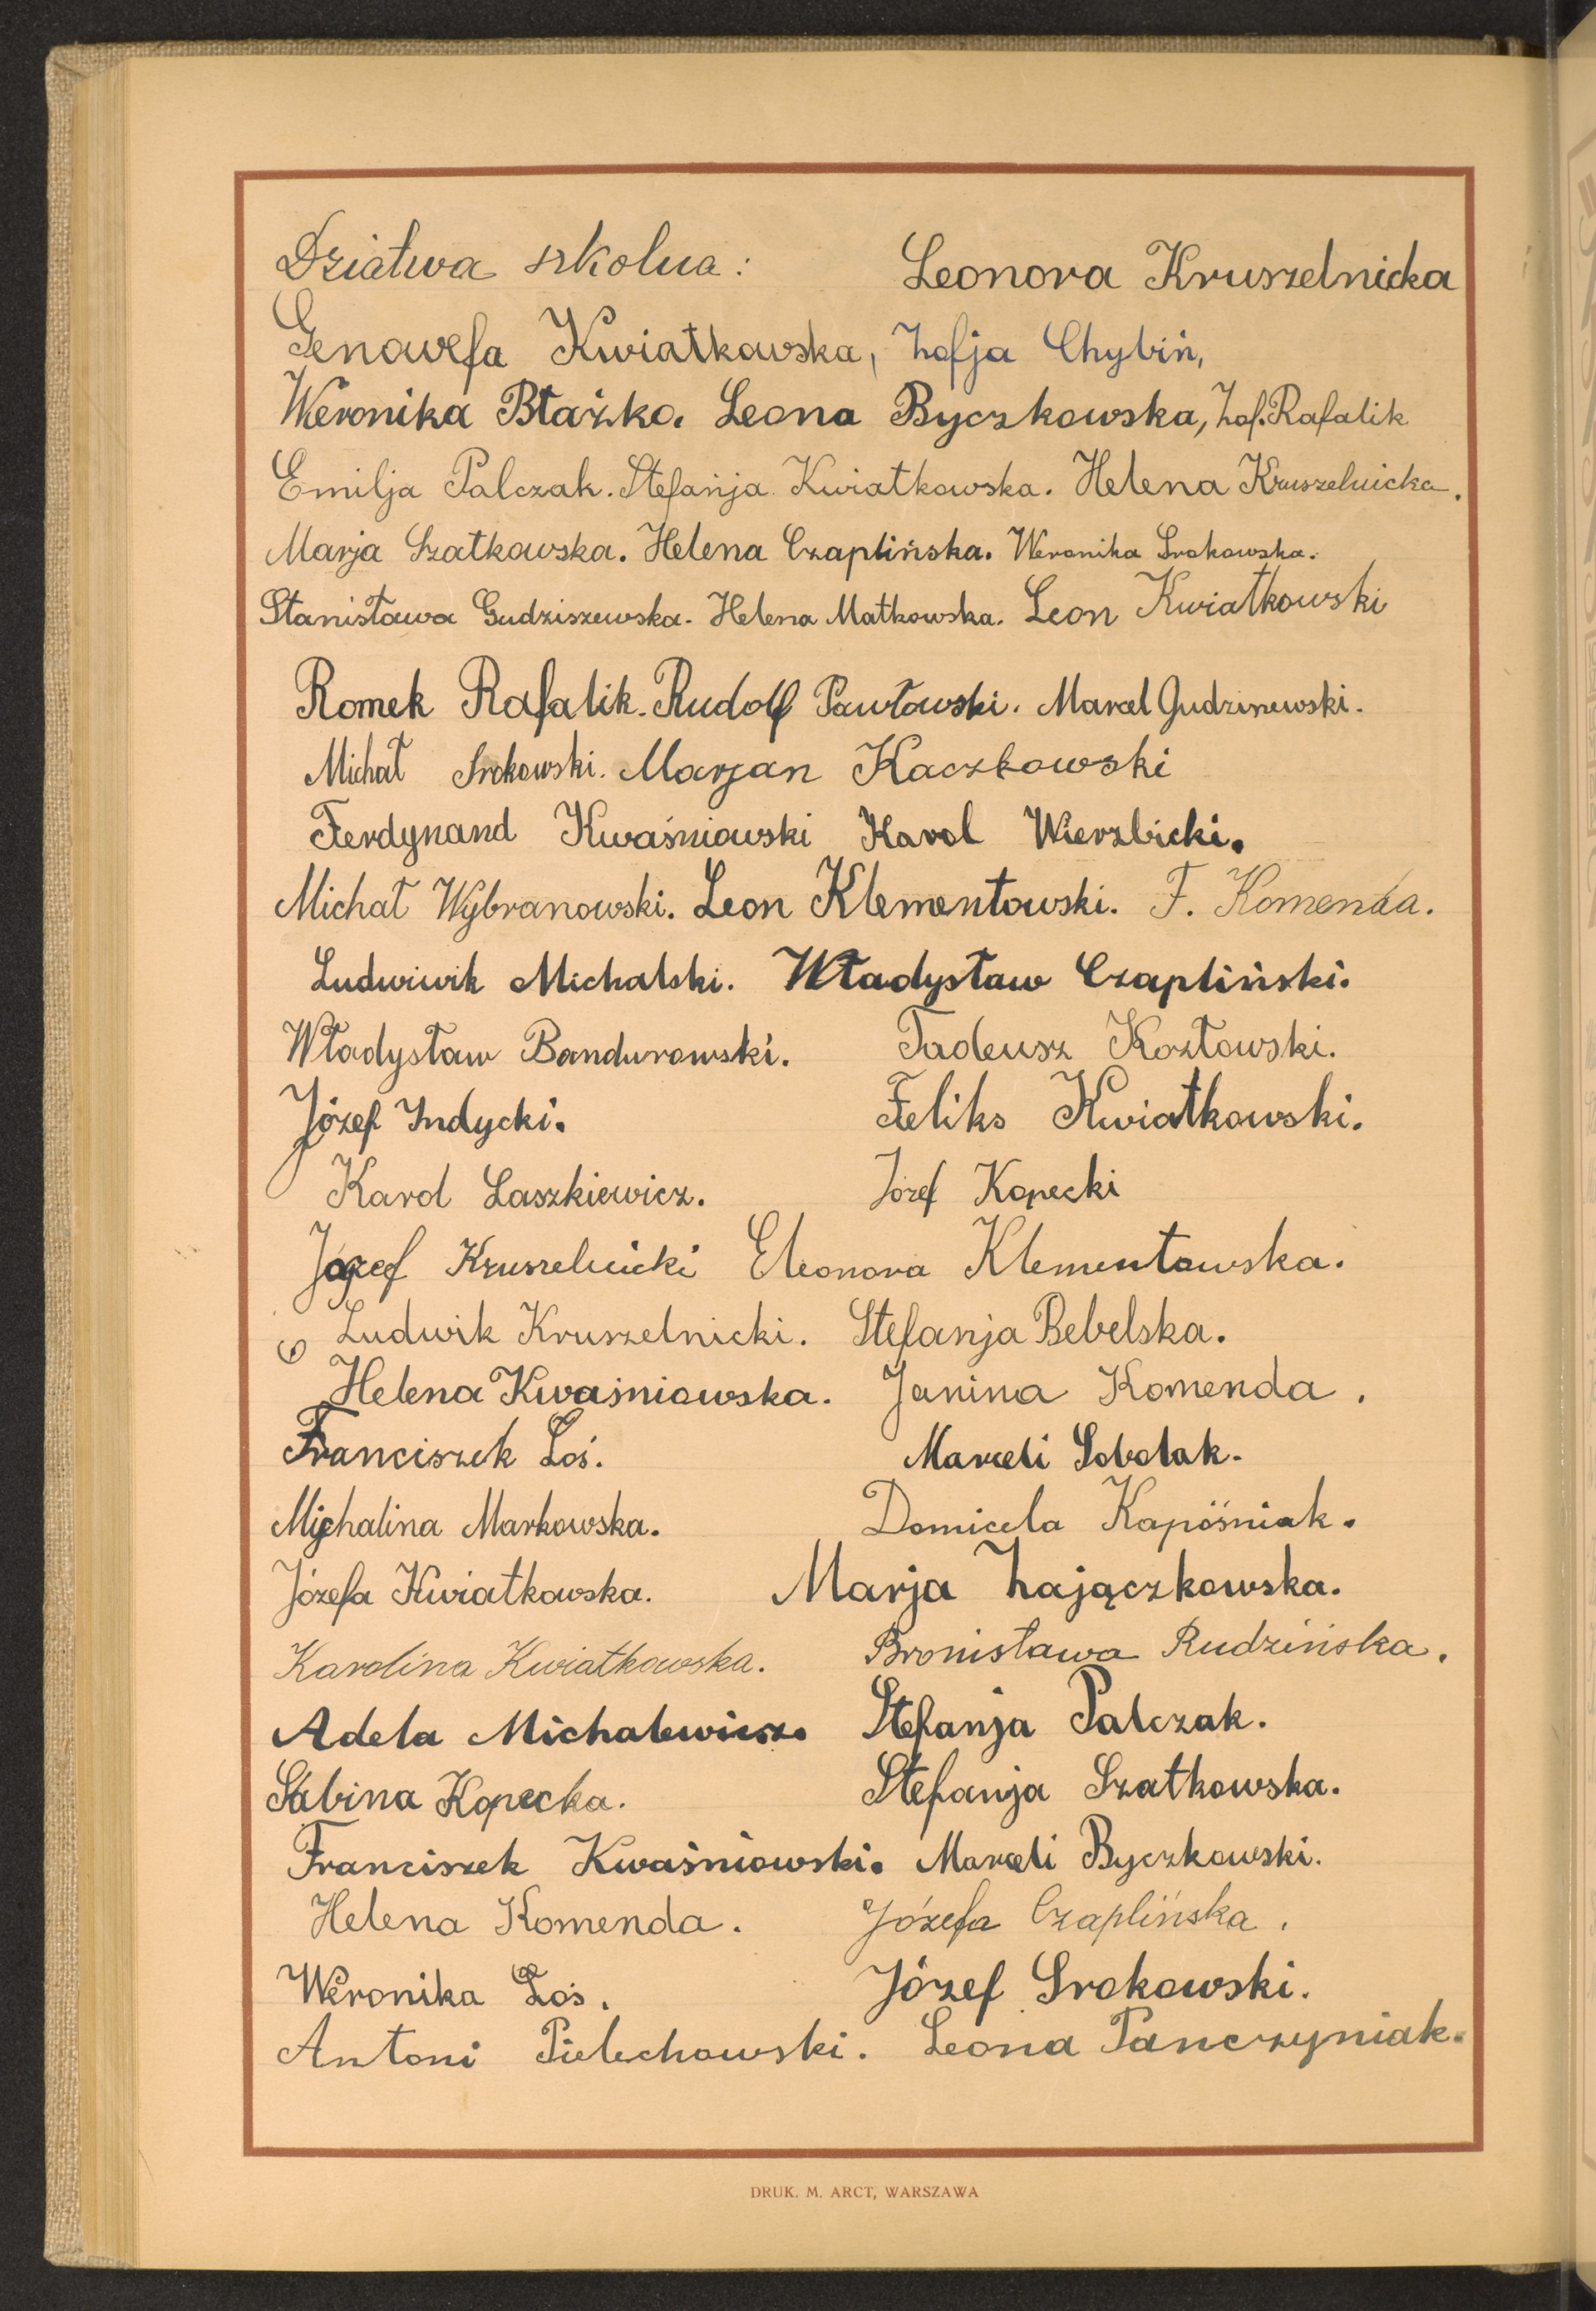 Dziatwa szkolna: Leonora Kruszelnicka
Genowefa Kwiatkowska, Zofja Chybiń,
Weronika Błażko. Leona Byczkowska, Zof. Rafalik
Emilja Palczak. Stefańja Kwiatkowska. Helena Kruszelnicka.
Marja Szatkowska. Helena Czaplińska. Weronika Srokowska.
Stanisława Gudziszewska. Helena Matkowska. Leon Kwiatkowski
Romek Rafalik. Rudolf Pawłowski. Marcel Gudziszewski.
Michał Srokowski. Marjan Kaczkowski
Ferdynand Kwaśniowski Karol Wierzbicki.
Michał Wybranowski. Leon Klementowski. F. Komenda.
Ludwiwik Michalski. Władysław Czapliński.
Władysław Bandurowski. Tadeusz Kozłowski.
Józef Indycki. Feliks Kwiatkowski.
Karol Laszkiewicz. Józef Kopecki
Józef Kruszelnicki Eleonora Klementowska.
Ludwik Kruszelnicki. Stefanja Bebelska.
Helena Kwaśniowska. Janina Komenda.
Franciszek Łoś. Marceli Sobolak.
Michalina Markowska. Domicela Kapóśniak.
Józefa Kwiatkowska. Marja Zajączkowska.
Karolina Kwiatkowska. Bronisława Rudzińska.
Adela Michalewicz. Stefanja Palczak.
Sabina Kopecka. Stefanja Szatkowska.
Franciszek Kwaśniowski. Marceli Byczkowski.
Helena Komenda. Józefa Czaplińska.
Weronika Łoś. Józef Srokowski.
Antoni Pielechowski. Leona Panczyniak.
DRUK. M. ARCT, WARSZAWA